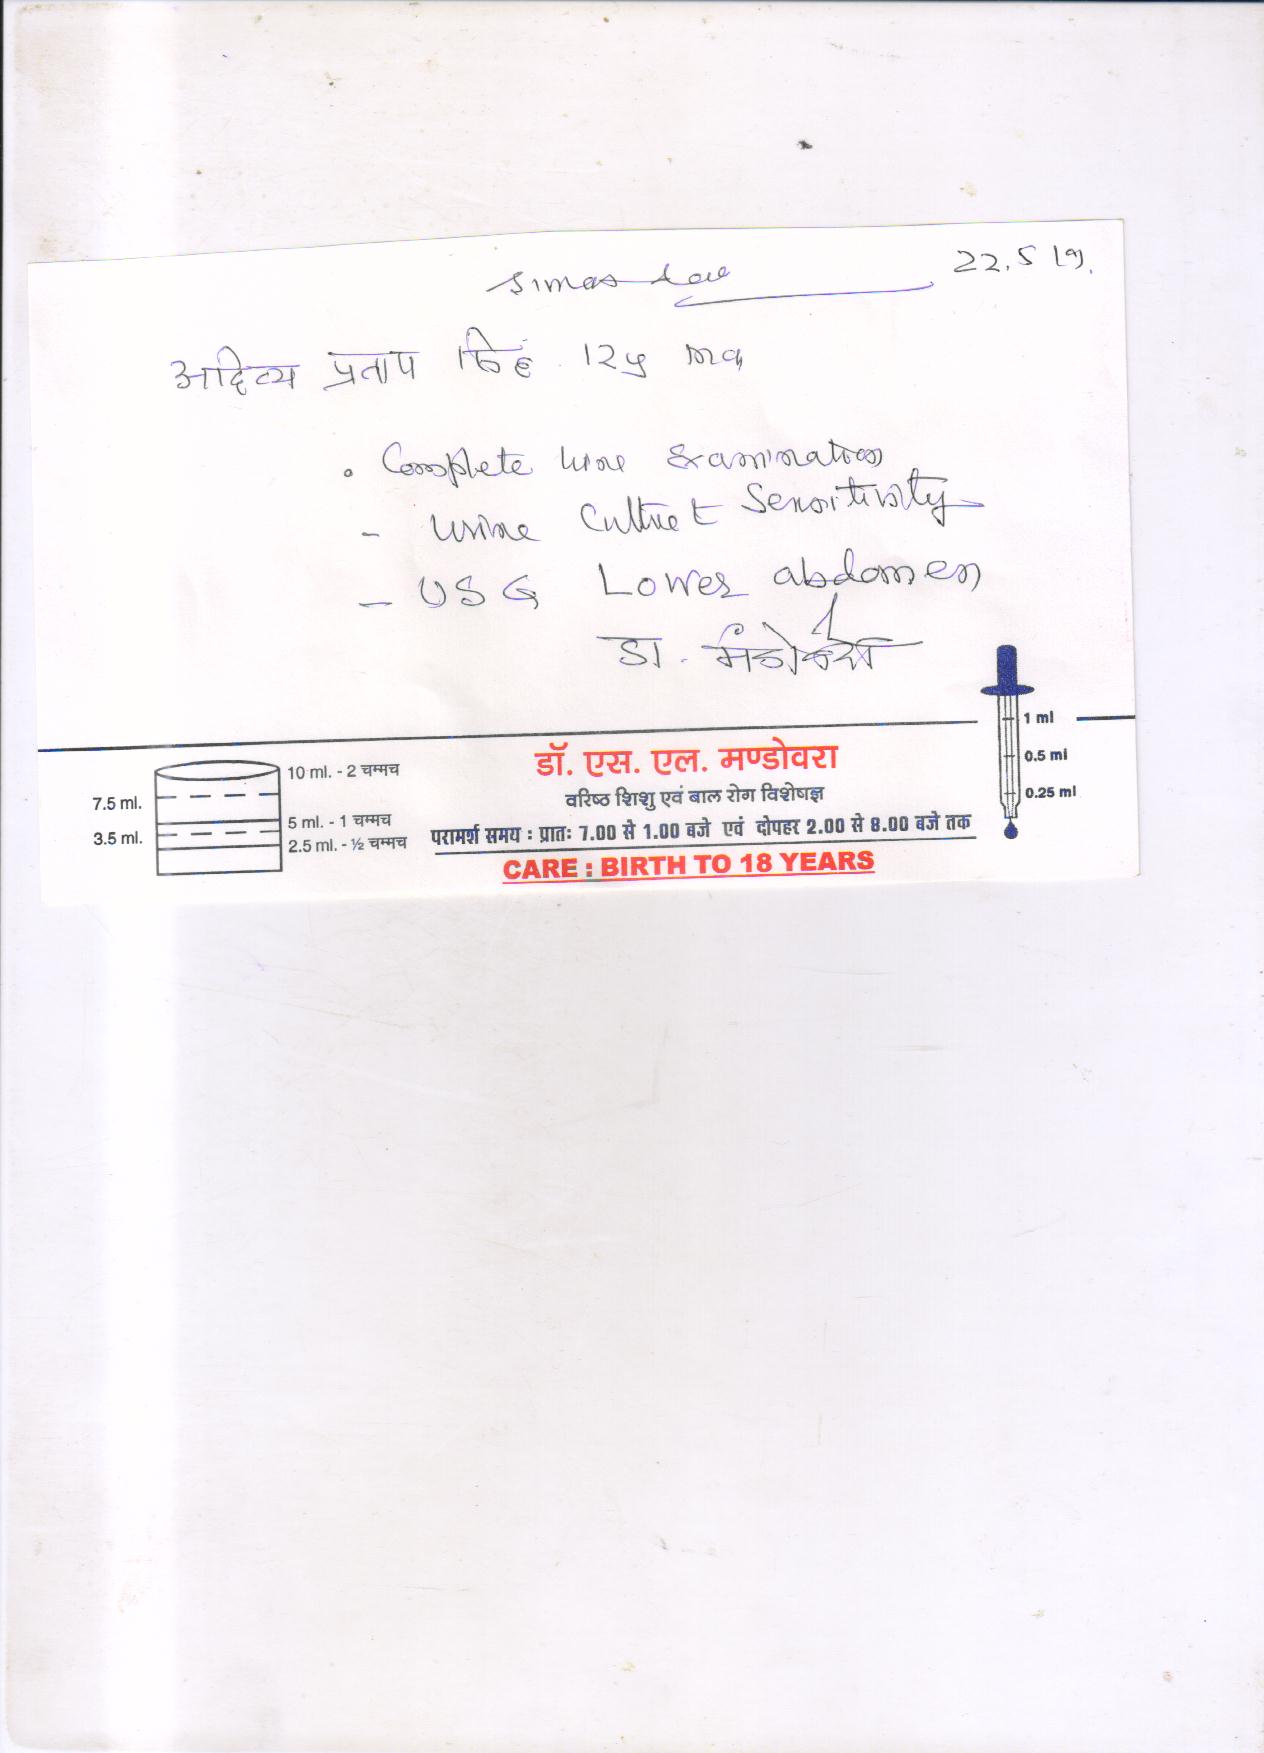 22.5.19.
आदित्य प्रताप सिंह 12y
• Complete Urine Examination
- Urine Culture & Sensitivity
- USG Lower abdomen
डा. मंडोवरा
1 ml
0.5 ml
0.25 ml
10 ml. - 2 चम्मच
7.5 ml.
5 ml. - 1 चम्मच
3.5 ml.
2.5 ml. - ½ चम्मच
डॉ. एस. एल. मण्डोवरा
वरिष्ठ शिशु एवं बाल रोग विशेषज्ञ
परामर्श समय : प्रातः 7.00 से 1.00 बजे एवं दोपहर 2.00 से 8.00 बजे तक
CARE : BIRTH TO 18 YEARS